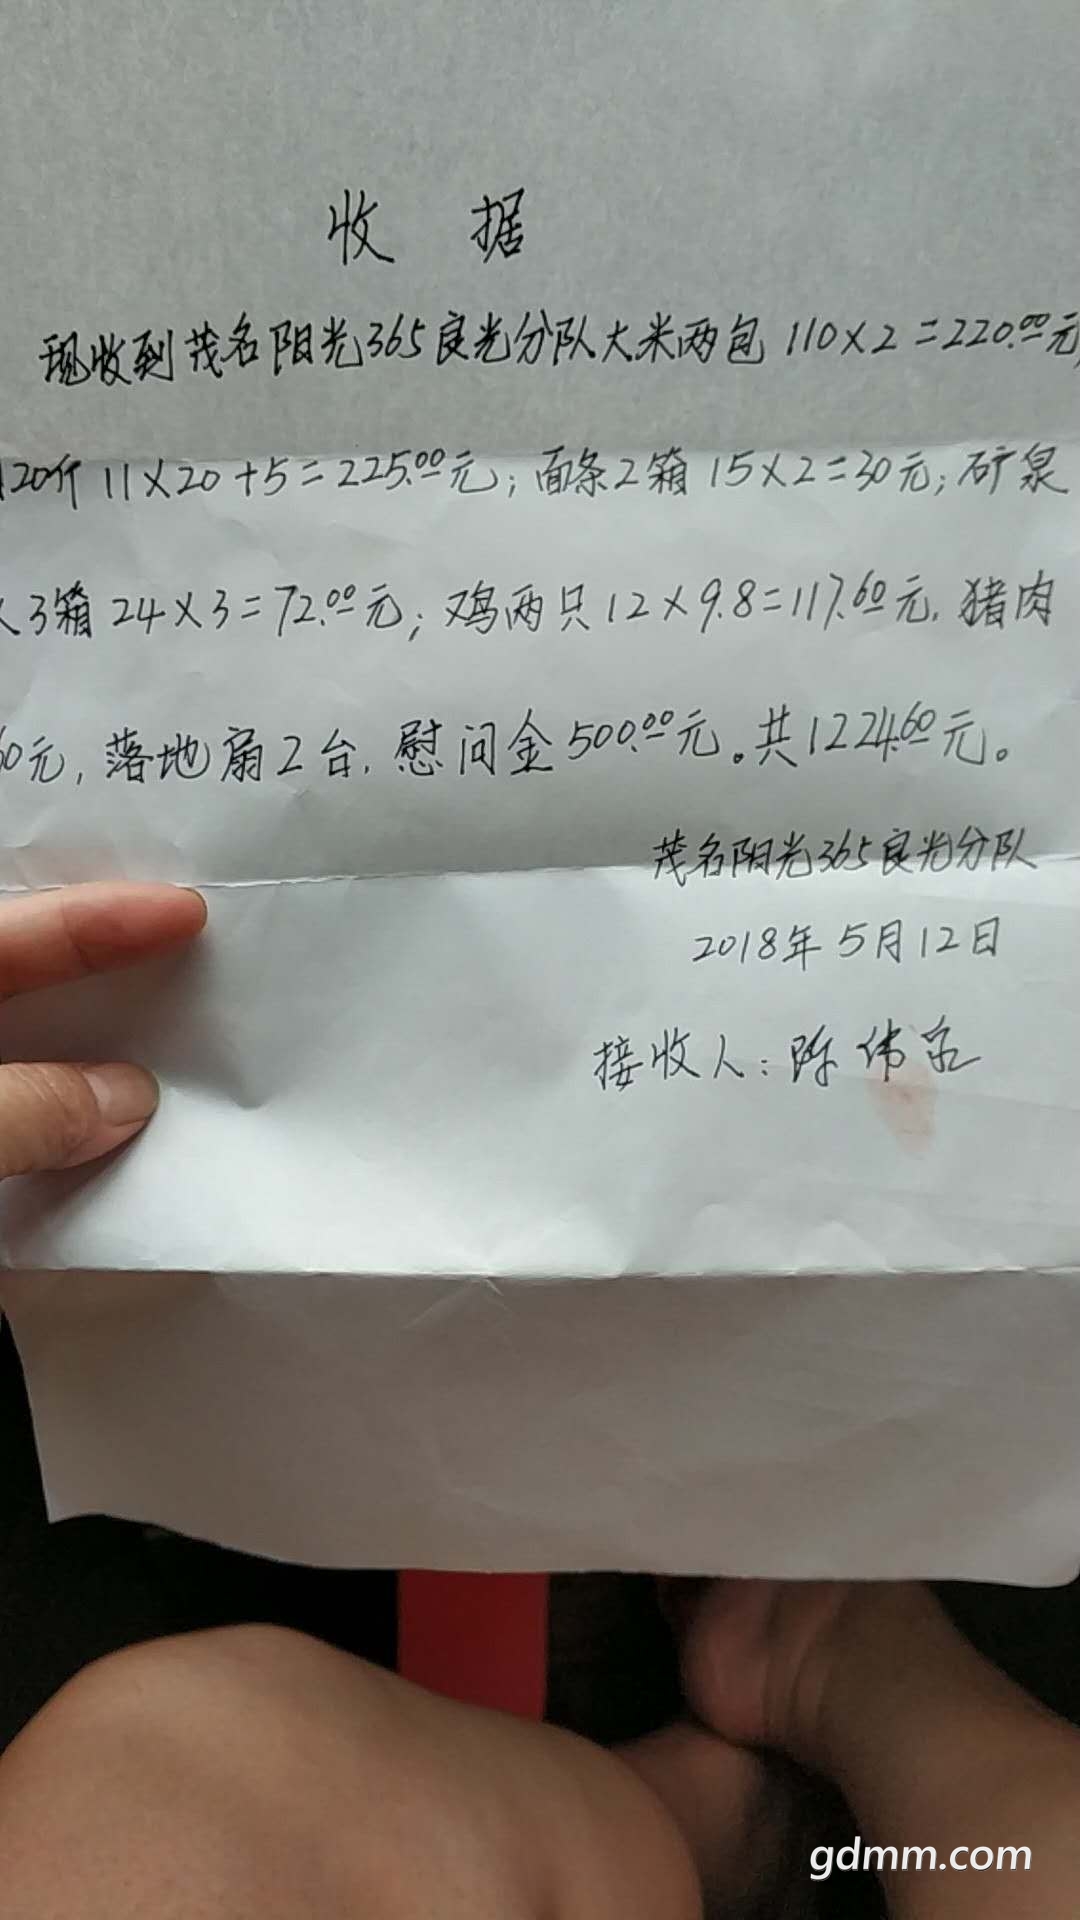 收 据
现收到茂名阳光365良光分队大米两包 110×2=220.00元,
20斤 11×20+5=225.00元; 面条2箱 15×2=30元; 矿泉
3箱 24×3=72.00元; 鸡两只 12×9.8=117.60元, 猪肉
60元, 落地扇2台, 慰问金500.00元。共1224.60元。
茂名阳光365良光分队
2018年5月12日
接收人: 陈伟
gdmm.com